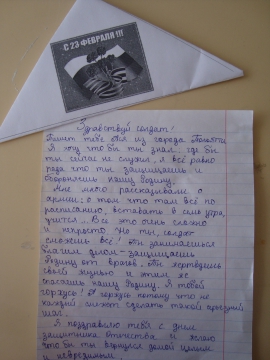 С 23 ФЕВРАЛЯ !!!
Здравствуй солдат!
Пишет тебе из города
Я хочу что бы ты знал, где бы
ты сейчас не служил, я всё равно
рада что ты защищаешь и
обороняешь нашу Родину.
Мне много рассказывали о
армии; о том что там всё по
расписанию, вставать в семь утра,
учится. Всё это очень сложно
и непросто. Но ты, солдат
сможешь всё! Ты занимаешься
благим делом - защищаешь
Родину от врагов. Ты жертвуешь
своей жизнью и этим ты
спасаешь нашу Родину. Я тобой
горжусь! Я горжусь потому что не
каждый сможет сделать такой
шаг.
Я поздравляю тебя с днём
защитника отечества и желаю
что бы ты вернулся домой целым
и невредимым.